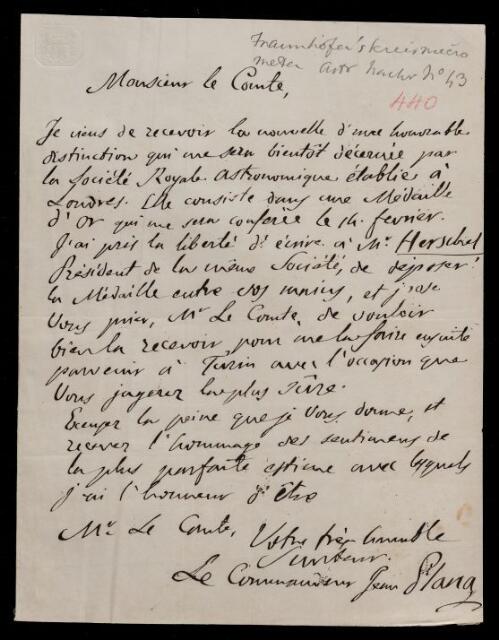 Fraunhofer's kreismicro
meter Astr Nachr No 43
440
Monsieur le Comte,
Je viens de recevoir la nouvelle d'une honorable
distinction qui me sera bientôt décernée par
la Société Royale Astronomique établie à
Londres. Elle consiste dans une Médaille
d'Or qui me sera conferée le 14. fevrier.
J'ai pris la liberté d'écrire à Mr. Herschel
Président de la même Société, de déposer
la Médaille entre vos mains, et j'ose
vous prier, Mr Le Comte, de vouloir
bien la recevoir pour me la faire ensuite
parvenir à Turin avec l'occasion que
vous jugerez la plus sûre.
Excusez la peine que je vous donne, et
recevez l'hommage des sentimens de
la plus parfaite estime avec lesquels
j'ai l'honneur d'être
Mr. Le Comte,
Votre très humble
Serviteur.
Le Commandeur Jean Plana